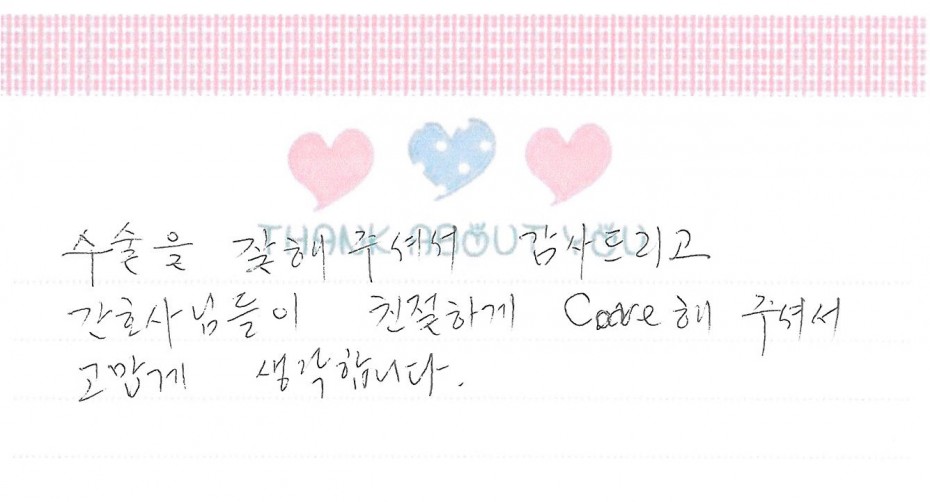 THANK ABOUT YOU
수술을 잘해주셔서 감사드리고
간호사님들이 친절하게 Care해 주셔서
고맙게 생각합니다.